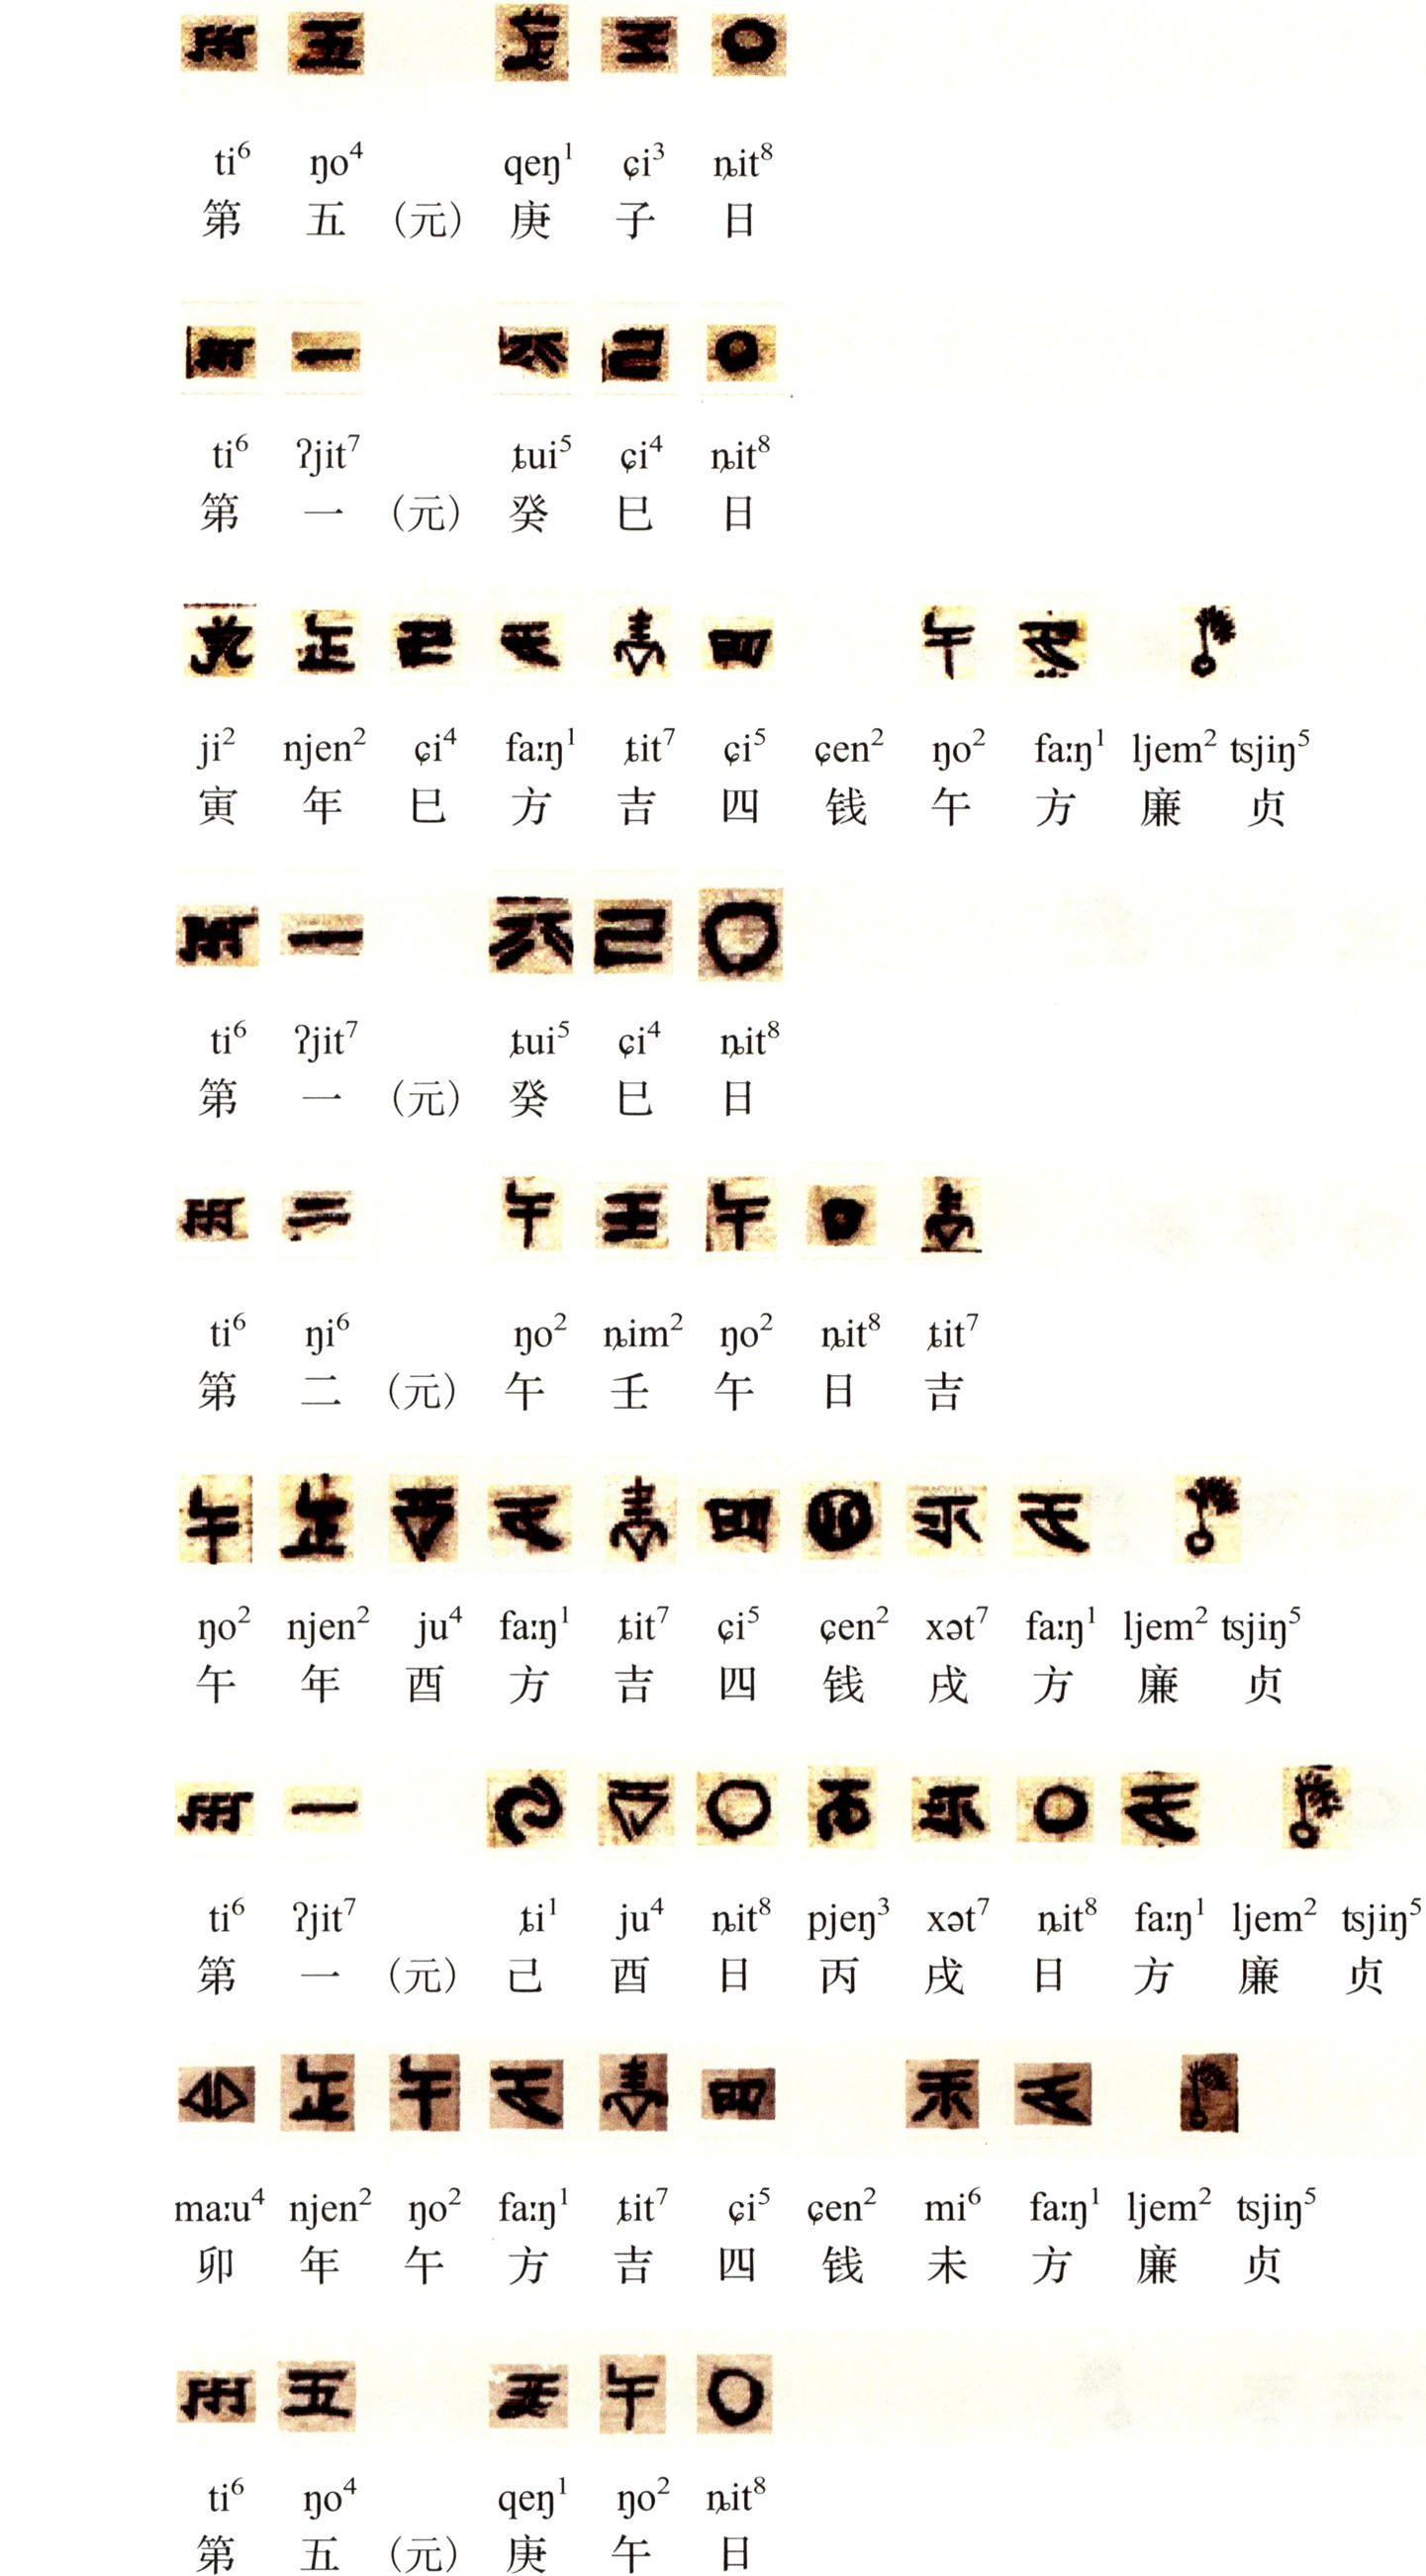 ti⁶ ŋo⁴ qeŋ¹ ɕi³ ȵit⁸
第 五 (元) 庚 子 日
ti⁶ ʔjit⁷ ȶui⁵ ɕi⁴ ȵit⁸
第 一 (元) 癸 巳 日
ji² njen² ɕi⁴ faːŋ¹ ȶit⁷ ɕi⁵ ɕen² ŋo² faːŋ¹ ljem² tsjiŋ⁵
寅 年 巳 方 吉 四 钱 午 方 廉 贞
ti⁶ ʔjit⁷ ȶui⁵ ɕi⁴ ȵit⁸
第 一 (元) 癸 巳 日
ti⁶ ŋi⁶ ŋo² ȵim² ŋo² ȵit⁸ ȶit⁷
第 二 (元) 午 壬 午 日 吉
ŋo² njen² ju⁴ faːŋ¹ ȶit⁷ ɕi⁵ ɕen² xət⁷ faːŋ¹ ljem² tsjiŋ⁵
午 年 酉 方 吉 四 钱 戌 方 廉 贞
ti⁶ ʔjit⁷ ȶi¹ ju⁴ ȵit⁸ pjeŋ³ xət⁷ ȵit⁸ faːŋ¹ ljem² tsjiŋ⁵
第 一 (元) 己 酉 日 丙 戌 日 方 廉 贞
maːu⁴ njen² ŋo² faːŋ¹ ȶit⁷ ɕi⁵ ɕen² mi⁶ faːŋ¹ ljem² tsjiŋ⁵
卯 年 午 方 吉 四 钱 未 方 廉 贞
ti⁶ ŋo⁴ qeŋ¹ ŋo² ȵit⁸
第 五 (元) 庚 午 日